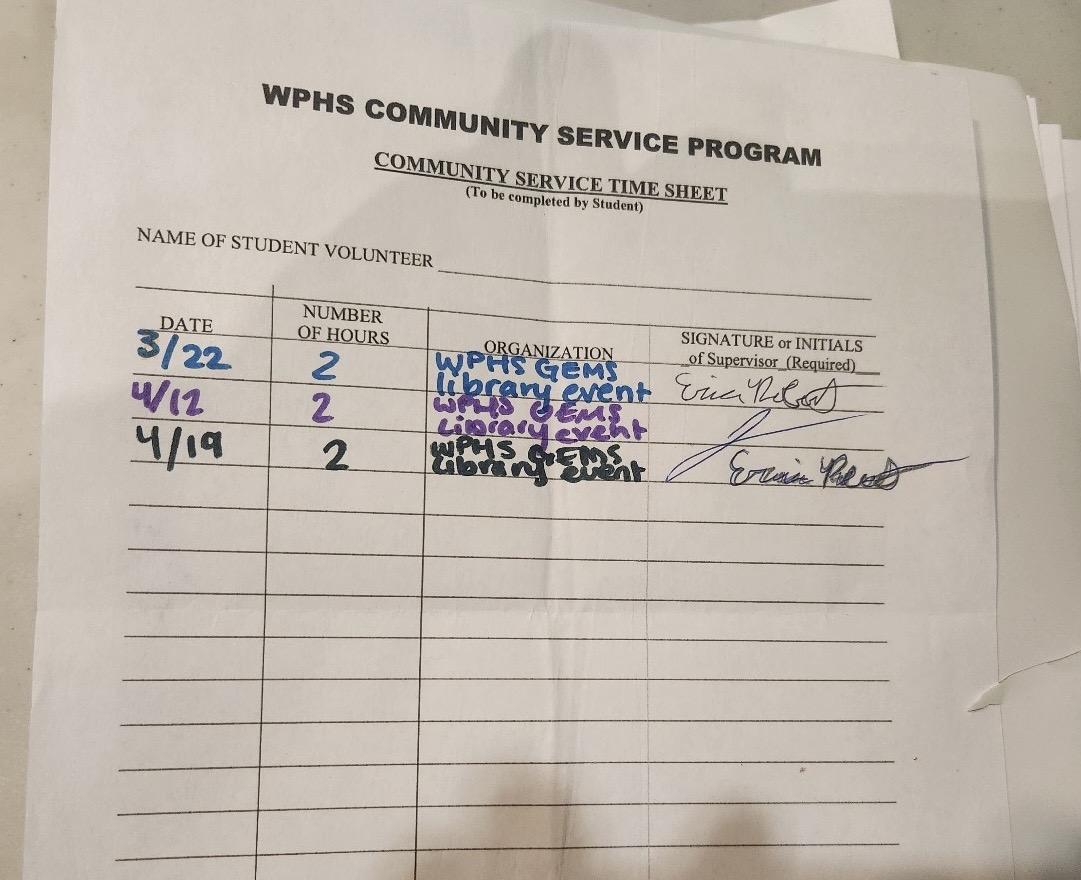 WPHS COMMUNITY SERVICE PROGRAM
COMMUNITY SERVICE TIME SHEET
(To be completed by Student)
NAME OF STUDENT VOLUNTEER
DATE
NUMBER
OF HOURS
ORGANIZATION
SIGNATURE or INITIALS
of Supervisor (Required)
3/22
2
WPHS GEMS
library event
4/12
2
WPHS GEMS
Library event
4/19
2
WPHS GEMS
Library event